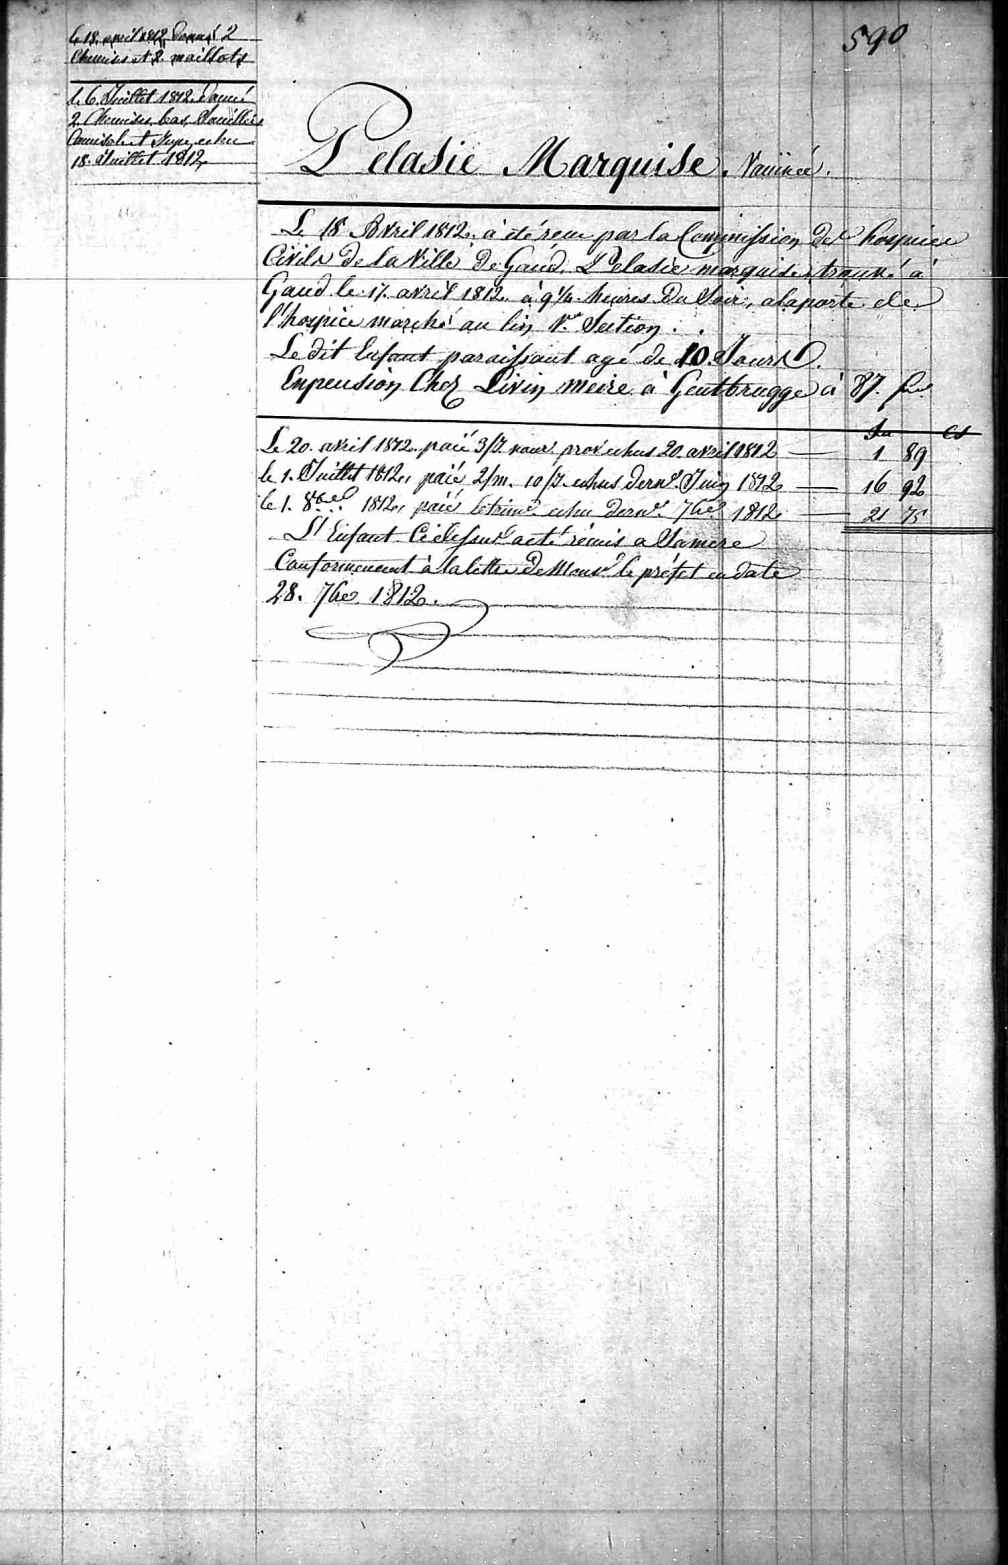 590
le 18. avril 1812 donné 2
Chemises et 2. maillots
le 6. Juillet 1812. donné
2. Chemises, bas,
Camisole et Jupe, echu
18. Juillet 1812,
Pelasie Marquise. Vaccinée.
Le 18 Avril 1812. à été recu par la Commission des hospice
Civils de la Ville De Gand, Pelasie marquise, trouvé à
Gand le 17. avril 1812. à 9 1/4 heures Du Soir, alaporte de
l'hospice marché au lin 1.re Section.
Le dit Enfant paraissant agé de 10. Jours.
Enpension Chez Livin meire à Gentbrugge à 87. fr.
fr cs
Le 20. avril 1812. paié 3/J. nour. prov. echus 20. avril 1812 — 1 89
le 1. Juillet 1812, paié 2/m. 10/J. echus dern.r Juin 1812 — 16 92
le 1. 8bre 1812, paié letrime echu dern.r 7bre 1812 — 21 75
L'Enfant Cidessus aeté remis a Samere
Conformement à lalettre deMons.r le préfet en date
28. 7bre 1812.